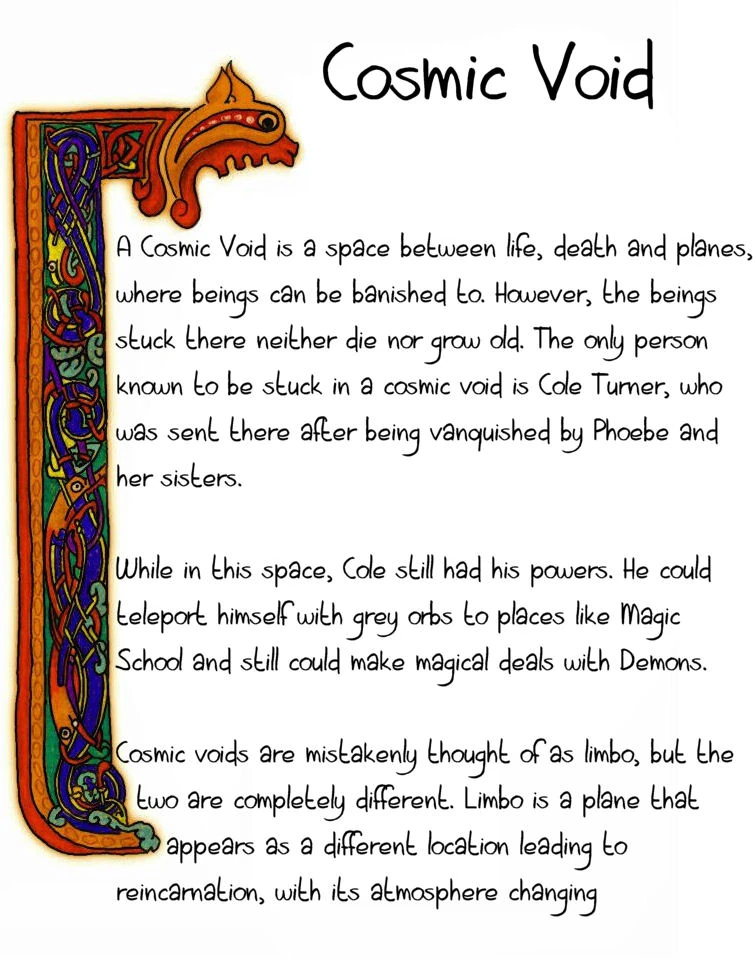 Cosmic Void
A Cosmic Void is a space between life, death and planes,
where beings can be banished to. However, the beings
stuck there neither die nor grow old. The only person
known to be stuck in a cosmic void is Cole Turner, who
was sent there after being vanquished by Phoebe and
her sisters.
While in this space, Cole still had his powers. He could
teleport himself with grey orbs to places like Magic
School and still could make magical deals with Demons.
Cosmic voids are mistakenly thought of as limbo, but the
two are completely different. Limbo is a plane that
appears as a different location leading to
reincarnation, with its atmosphere changing